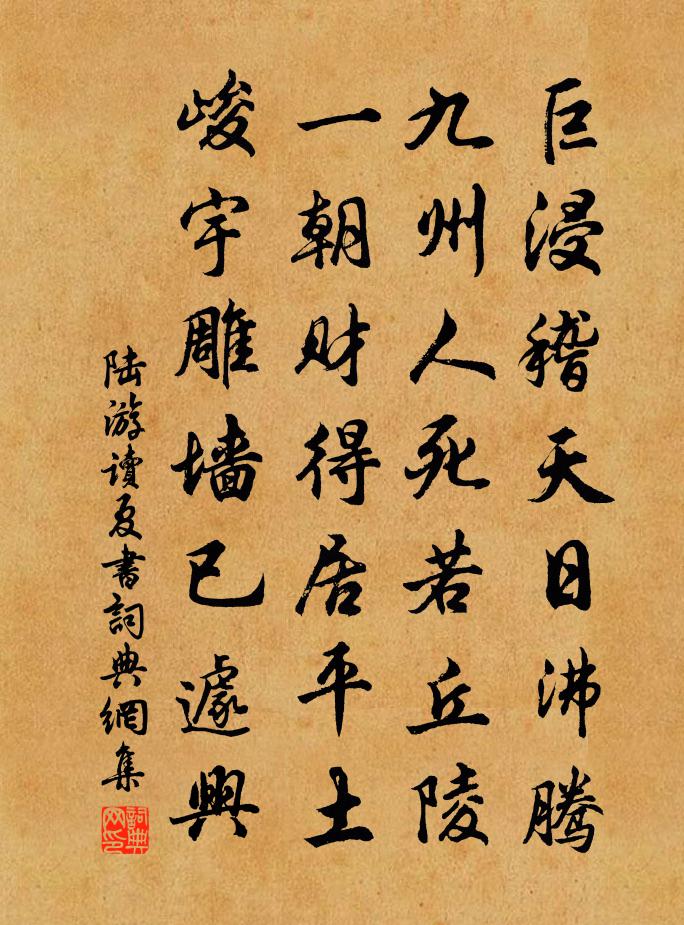 巨浸稽天日沸腾
九州人死若丘陵
一朝财得居平土
峻宇雕墙已遽興
陆游讀夏書詞典網集
詞典网印